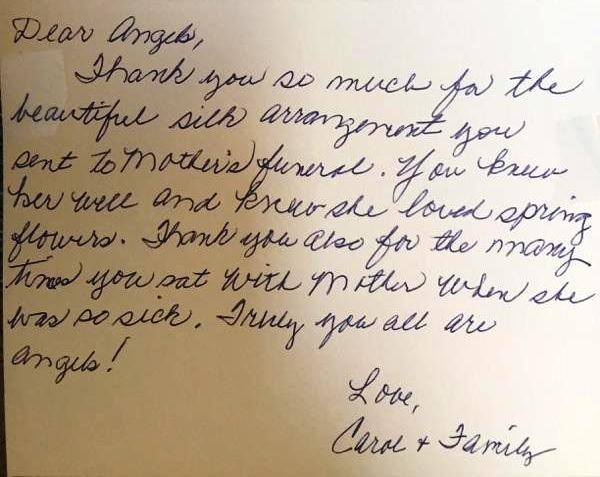 Dear Angels,
Thank you so much for the
beautiful silk arrangement you
sent to Mother's funeral. You knew
her well and knew she loved spring
flowers. Thank you also for the many
times you sat with Mother when she
was so sick. Truly you all are
angels!
Love,
Carol + Family